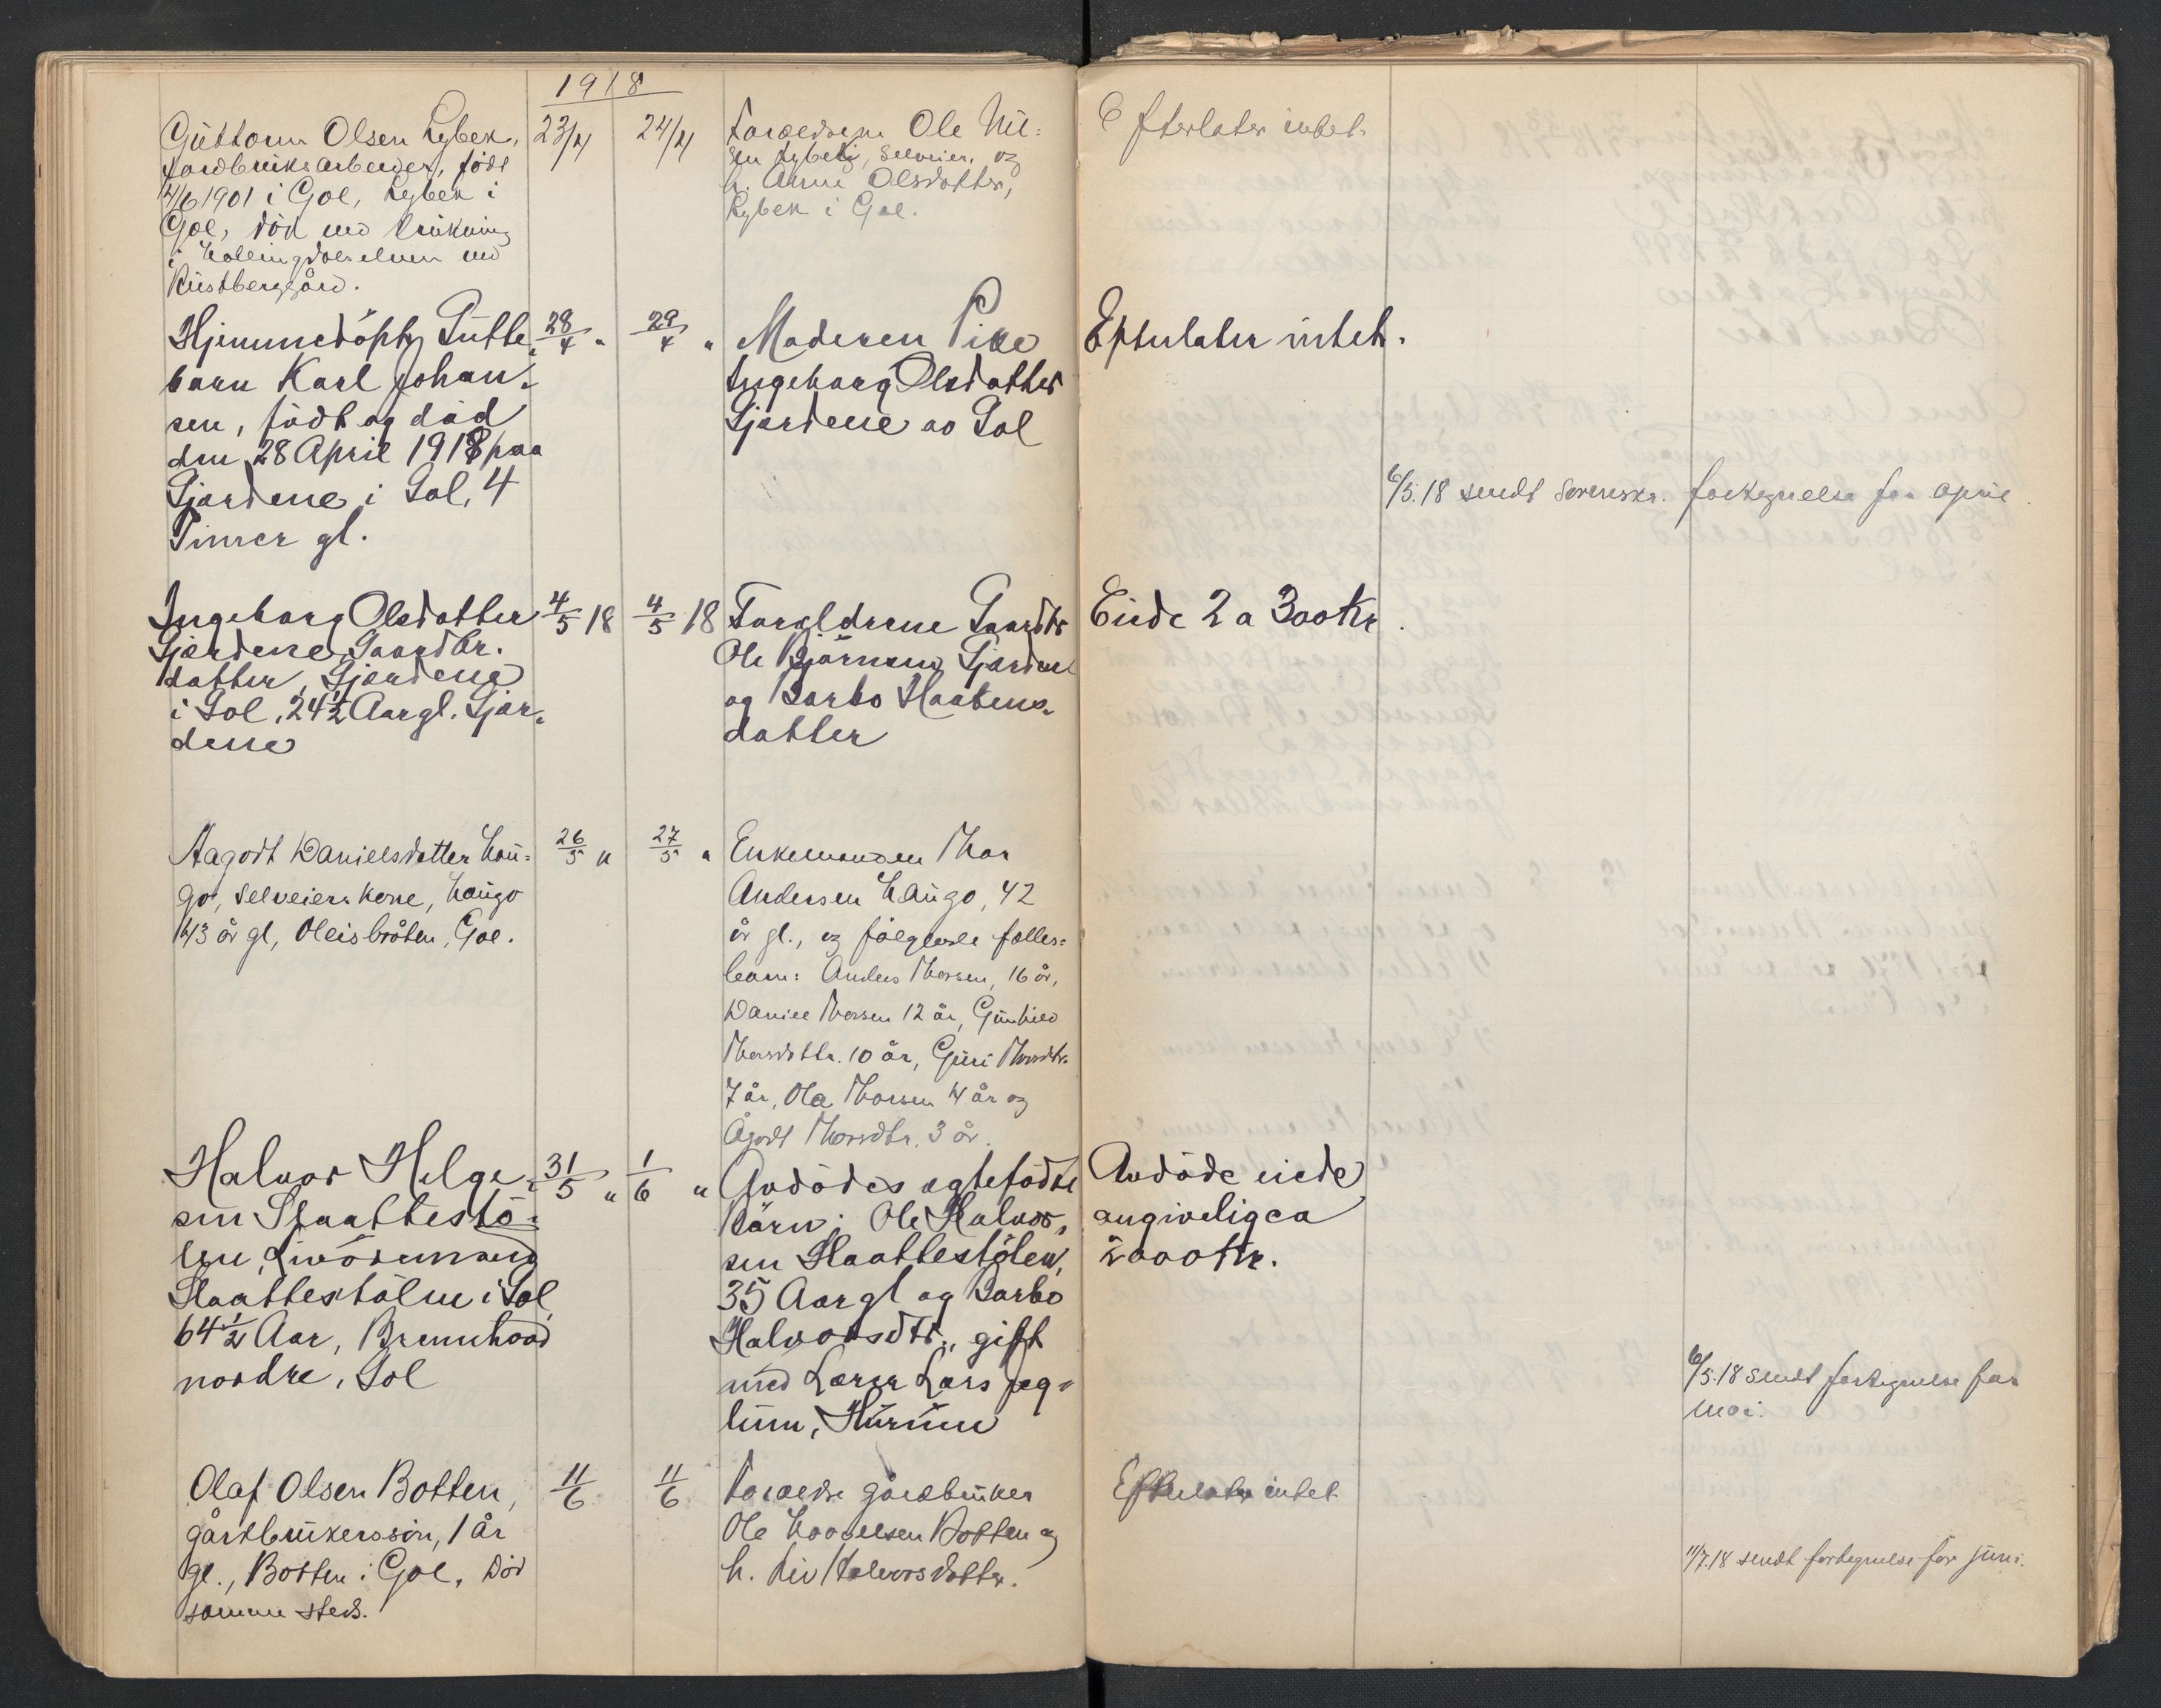 1918
Guttorm Olsen Rybek,
jordbruksarbeider, född
4/6 1901 i Gol, Rybek i
Gol, död ved drukning
i Hallingdalselven ved
Rustberggård.
23/4
24/4
Forældrene Ole Nil=
sen Rybek, selveier, og
h. Anne Olsdatter,
Rybek i Gol.
Efterlater intet.
Hjemmedöpt Gutte
barn Karl Johan-
sen, födt og död
den 28 April 1918 paa
Gjardene i Gol, 4
Timer gl.
28/4 "
29/4 "
Moderen Pike
Ingeborg Olsdatter
Gjardene av Gol
Efterlater intet.
6/5.18 sendt Sorenskr. fortegnelse for april.
Ingeborg Olsdatter
Gjardene, Gaardbr.
datter, Gjardene
i Gol, 24 1/2 Aar gl. Gjar-
dene
4/5 18
4/5 18
Forældrene Gaardbr
Ole Björnsen Gjardene
og Barbo Haakens-
datter
Eiede 2 a 300 Kr.
Aagodt Danielsdatter Hau=
go, selveiers kone, Haugo
43 år gl, Oleisbråten, Gol.
26/5 "
27/5 "
Enkemanden Thor
Andersen Haugo, 42
år gl., og følgende fælles=
barn: Anders Thorsen, 16 år,
Daniel Thorsen 12 år, Gunhild
Thorsdattr. 10 år, Guri Thorsdtr.
7 år, Ola Thorsen 4 år og
Ågodt Thorsdtr. 3 år.
Halvor Helge-
sen Slaattestö-
len, Livörmand
Slaattestölen i Gol
64 1/2 Aar, Brennhovd
nordre, Gol
31/5 "
1/6 "
Avdödes egtefödte
Börn: Ole Halvor-
sen Slaattestölen,
35 Aar gl og Barbo
Halvorsdtr., gift
med Lærer Lars Jeg-
lum, Hurum
Avdöde eiede
angivelig ca
2000 Kr.
6/5.18 sendt fortegnelse for
mai.
Olaf Olsen Botten,
gårdbrukerssön, 1 år
gl., Botten i Gol, död
samme steds.
11/6
11/6
Forældre gårdbruker
Ole Botten og
h. Liv Halvorsdatter.
Efterlater intet
11/7.18 sendt fortegnelse for juni.